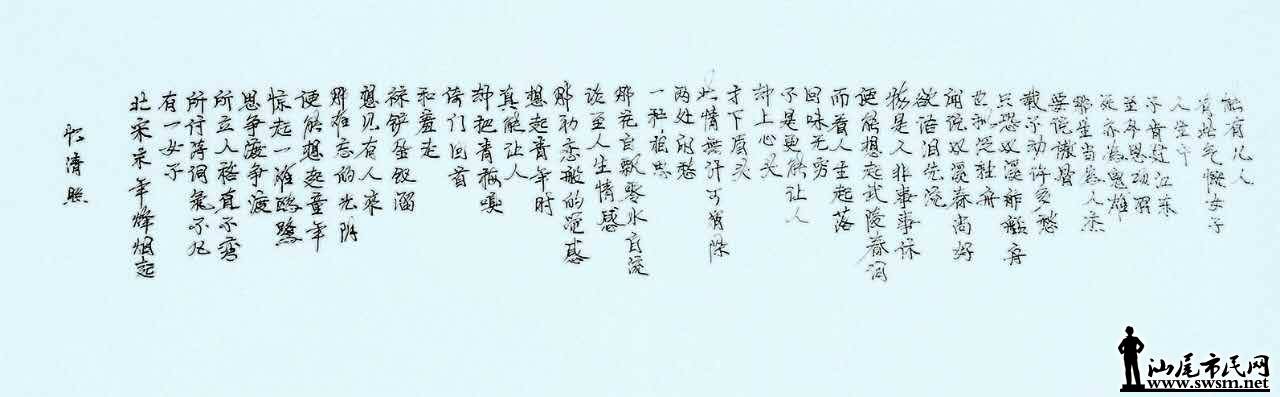 清照
北宋末年烽烟起
有一女子
所付诗词气不凡
所立人格直不弯
思争渡争渡
惊起一滩鸥鹭
便能想起童年
那难忘的光阴
想见有人来
袜铲金钗溜
和羞走
倚门回首
却把青梅嗅
真能让人
想起青年时
那初恋般的感
论至人生情感
那花自飘零水自流
一种相思
两处闲愁
此情無计可消除
才下眉头
却上心头
于是更能让人
回味无穷
而看人生起落
便能想起武陵春词
物是人非事事休
欲语泪先流
闻说双溪春尚好
也拟泛轻舟
只恐双溪舴艋舟
载不动许多愁
要说傲骨
那生当为人杰
死亦为鬼雄
至今思项羽
不肯过江东
人生中
有此气慨女子
能有几人
汕尾市民网
www.swsm.net